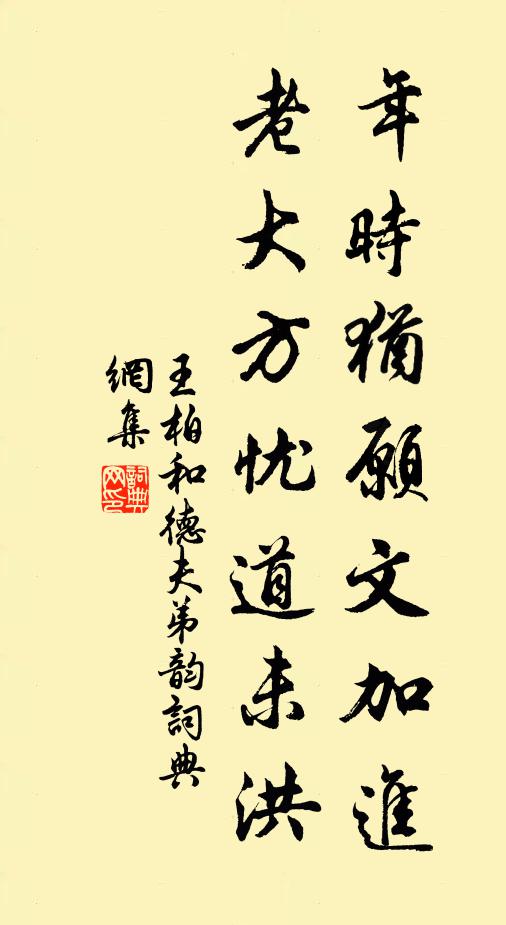 年時猶願文加進
老大方忧道未洪
王柏和德夫弟韵詞典
網集
詞典
网印